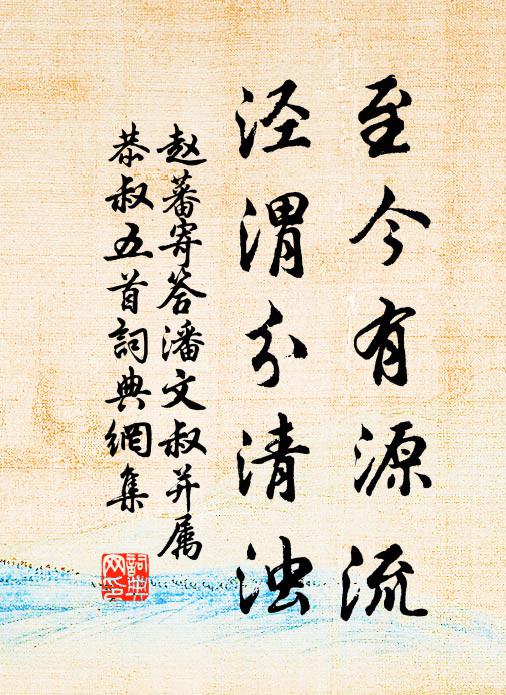 至今有源流
泾渭分清浊
赵蕃寄答潘文叔并属
恭叔五首詞典網集